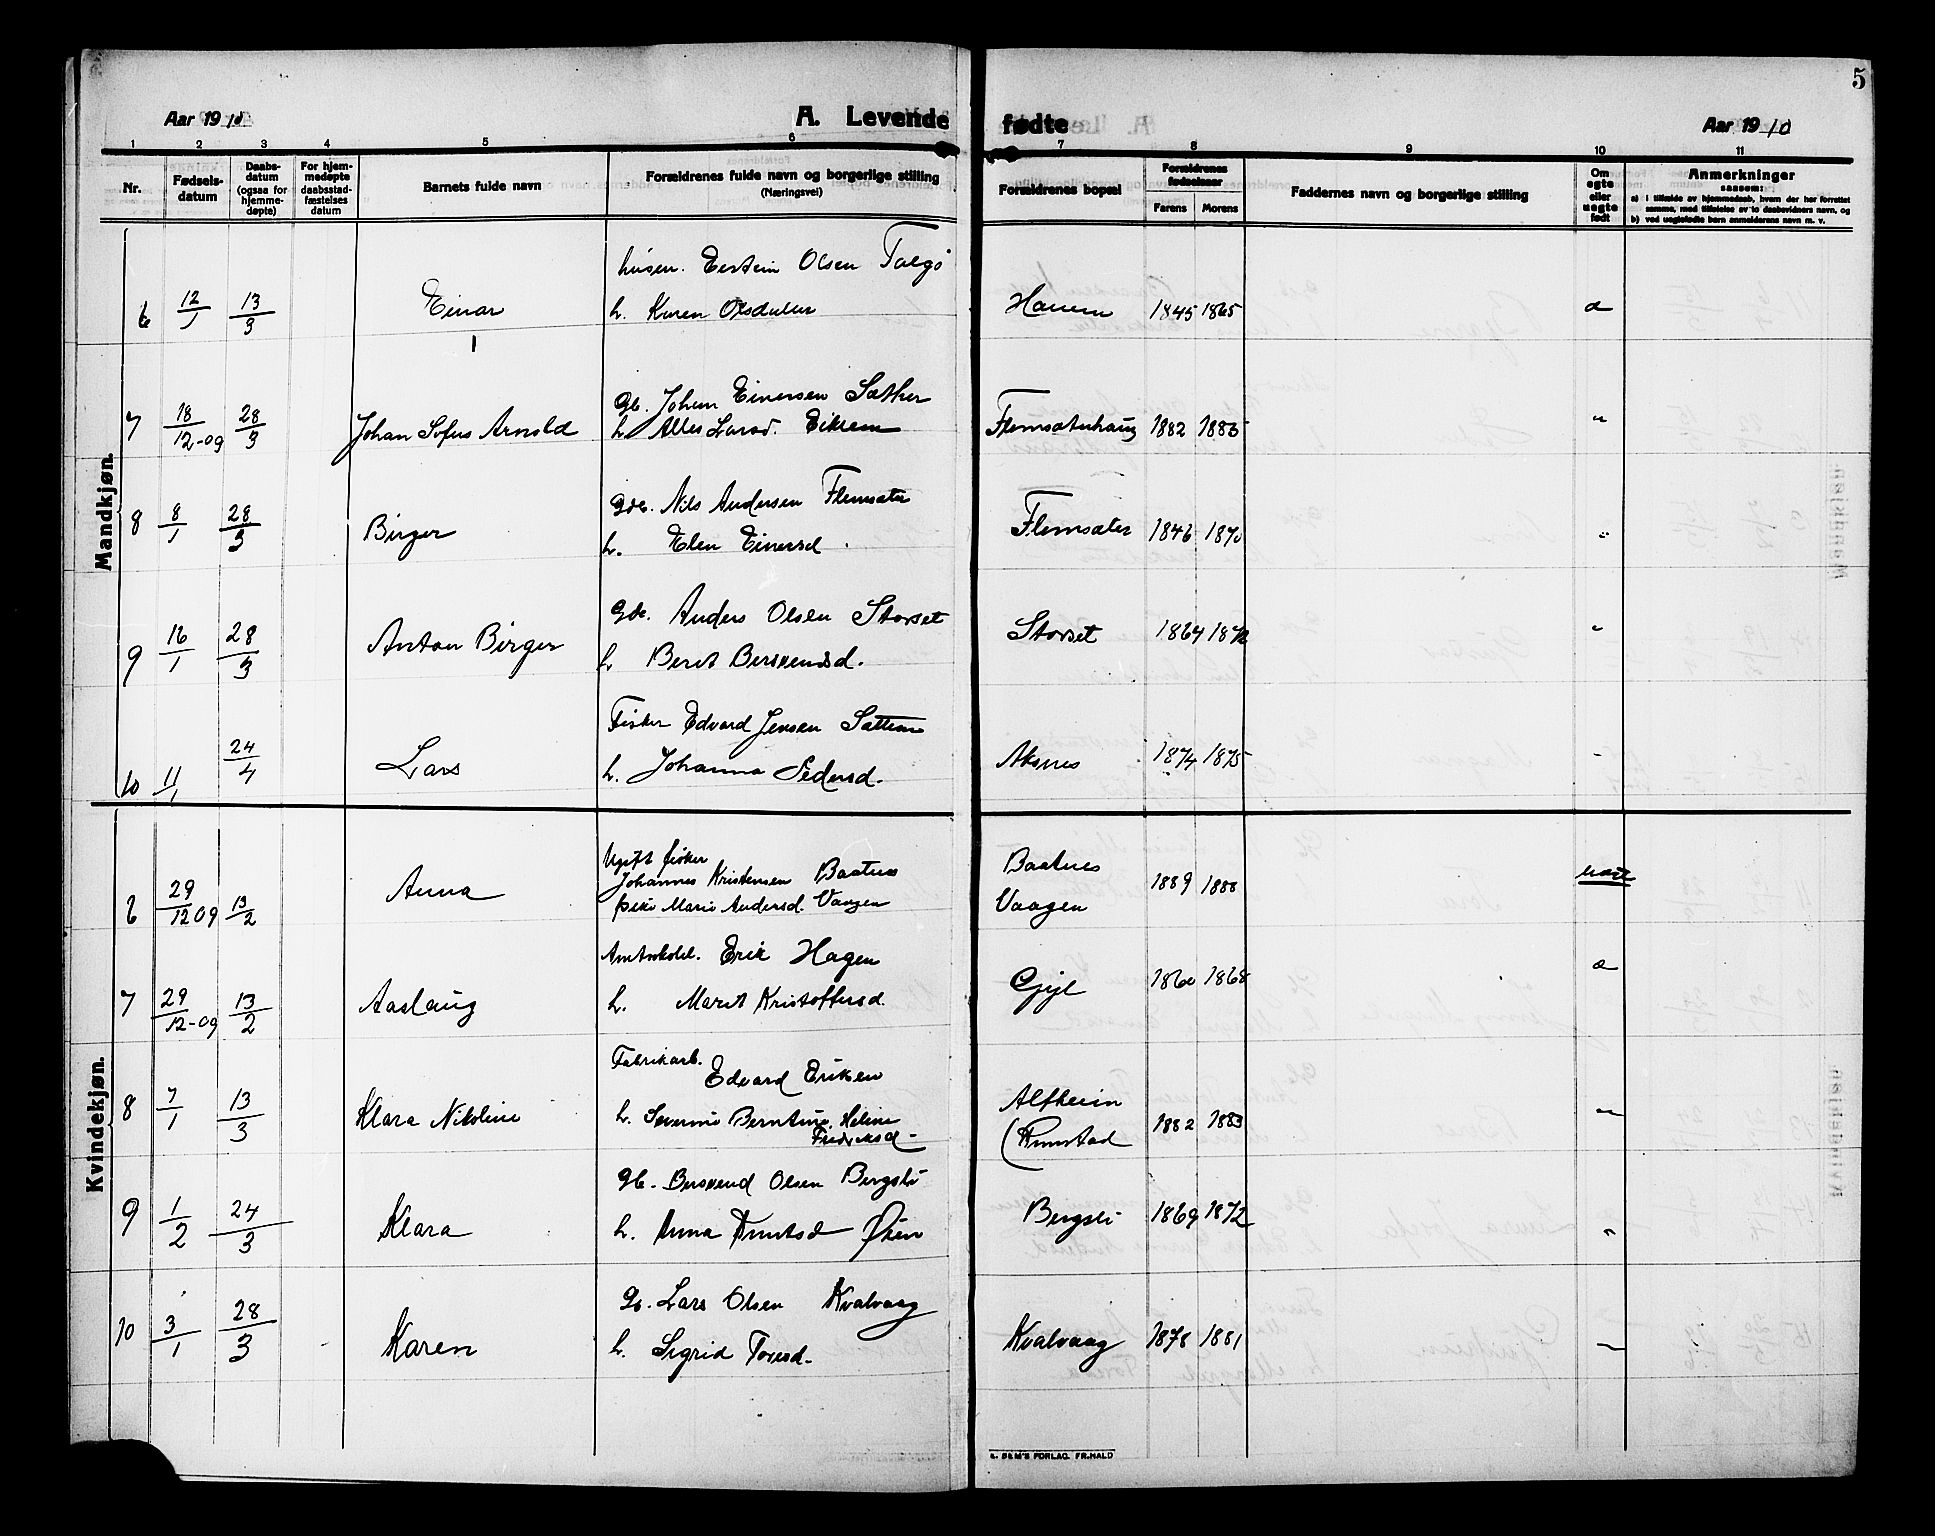 5
Aar 1910 A. Levende fødte Aar 1910
1 2 3 4 5 6 7 8 9 10 11
Nr. Fødselsdatum Daabsdatum (ogsaa for hjemmedøpte) For hjemmedøpte daabsstadfæstelses datum Barnets fulde navn Forældrenes fulde navn og borgerlige stilling (Næringsvei) Forældrenes bopæl Forældrenes fødselsaar Farens Morens Faddernes navn og borgerlige stilling Om egte eller uegte født Anmerkninger saasom:
a) i tilfælde av hjemmedaab, hvem der har forrettet samme, med tilføielse av to daabsvidners navn, og
b) ved uegtefødte barn anmelderens navn m. v.
Mandkjøn.
husm. Eistein Olsen Talgø
6 12/1 13/3 Einar h. Karen Olsdatter Hauen 1845 1865 æ
1
Gb. Johan Einersen Sæther
7 18/12-09 28/3 Johan Sofus Arnold h. Larsd. Eikrem Flemsæterhaug 1882 1885 "
Gde. Nils Andersen Flemsæter
8 8/1 28/3 Birger h. Elen Einersd. Flemsæter 1846 1870 "
Gde. Anders Olsen Storset
9 16/1 28/3 Anton Birger h. Berit Bersvendsd. Storset 1864 1872 "
Fisker Edvard Jensen Sættem
10 11/1 24/4 Lars h. Johanna Pedersd. Aksnes 1874 1875 -
Kvindekjøn.
Ugift fisker
Johannes Kristensen Baatnes Baatnes
6 29/12 09 13/2 Anna pike Marie Andersd. Vaagen Vaagen 1889 1888 uægte
Amtsskolel. Erik Hagen
7 29/12-09 13/2 Aaslaug h. Marit Kristoffersd. Gjyl 1860 1868 æ
Fabrikarb.
Edvard Eriksen Alfheim
8 7/1 13/3 Klara Nikoline h. Severine Berntine Heline (Ramstad 1882 1883 "
Fredriksd -
Gb. Bersvend Olsen Bergsli
9 1/2 24/3 Klara h. Anna Knutsd Øien Bergsli 1869 1872 "
Gb. Lars Olsen Kvalvaag
10 3/1 28/3 Karen h. Sigrid Toresd. Kvalvaag 1878 1881 -
S. & M's FORLAG. FR.HALD